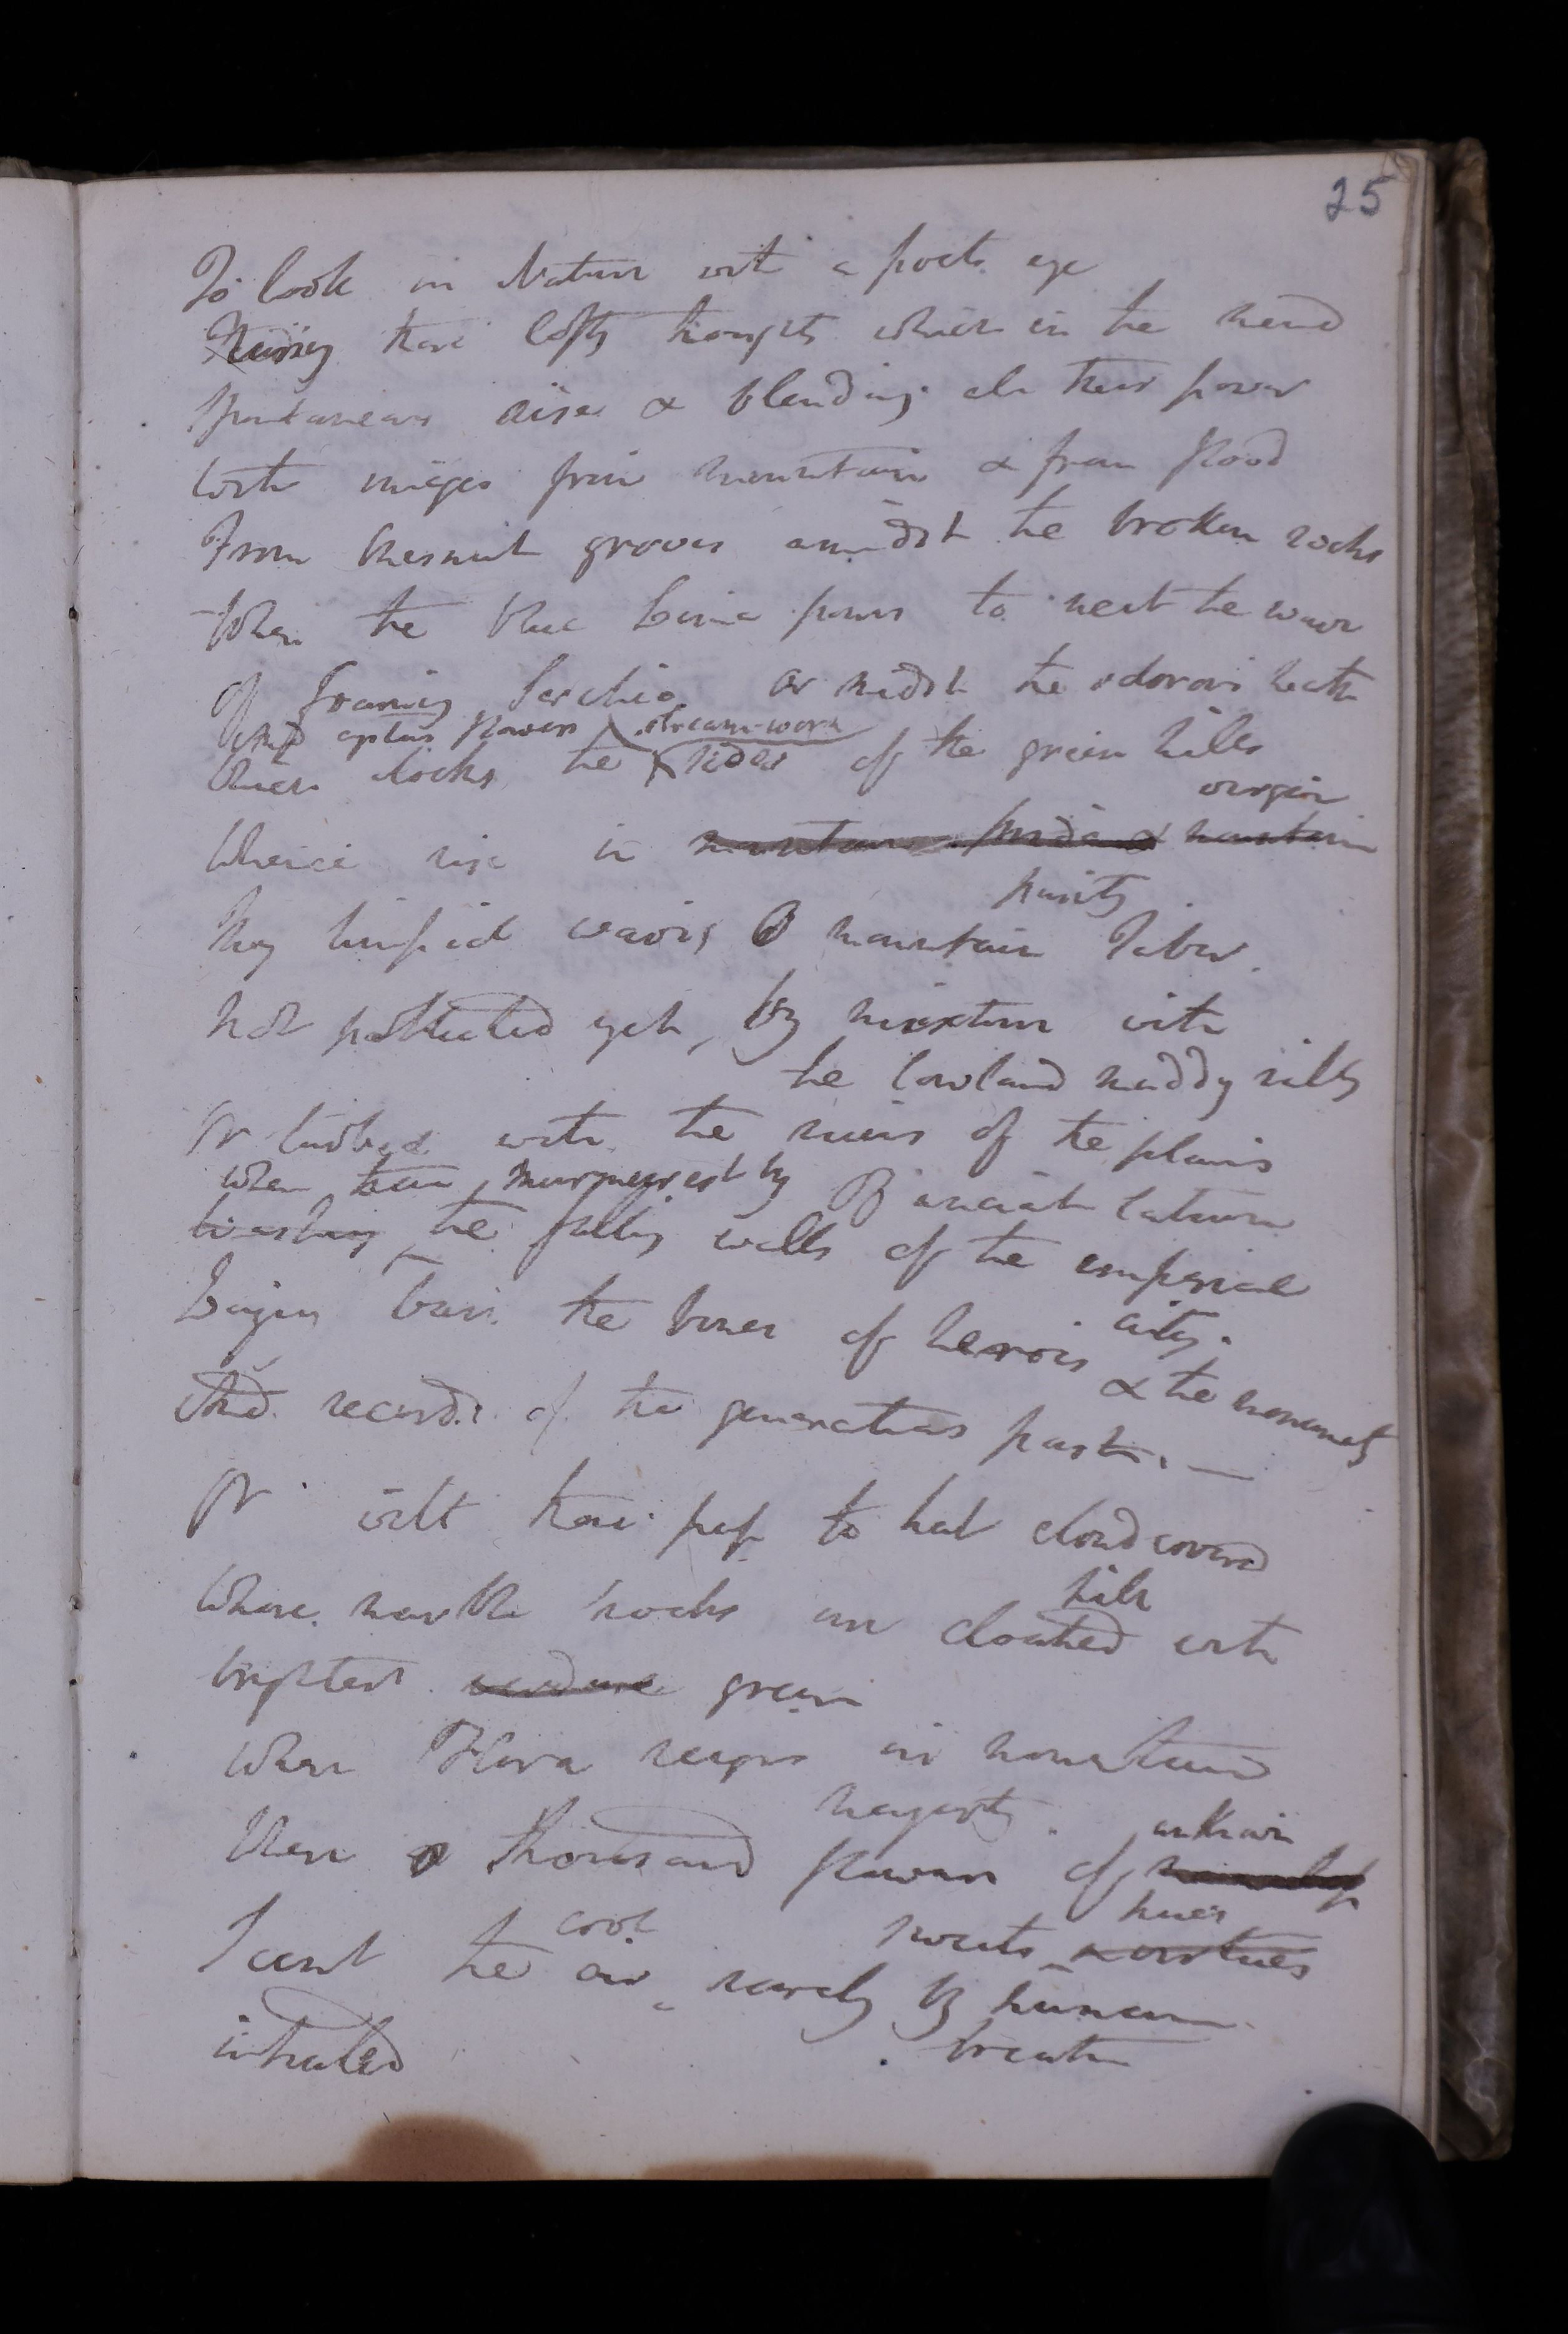 25
To look on Nature with a poets eye
Nursing those lofty thoughts which in the mind
Spontaneous rise & blending all their power
With images from mountain & from flood
From chesnut groves amidst the broken rocks
Where the blue Lima pours to meet the wave
Of foaming Serchio or midst the odorous heath
And cystus flowers stream-worn
Which clothes the sides of the green hills
virgin
Whence rise in mountain pride & mountain
purity
Thy limpid waves O mountain Tiber.
Not polluted yet, by mixture with
the lowland muddy rills
Or turbid with the ruins of the plains
when thou murmurest by Of ancient Latium
Washing the falling walls of the imperial
city.
Laying bare the bones of heroes & the monuments
And records of the generations past. —
Or wilt thou pass to that cloud covered
hill
Where marble rocks are cloathed with
brightest verdure green
When Flora reigns in mountain
majesty. unknown
Where a thousand flowers of
hues
cool sweets & virtues
Scent the air rarely by human
inhaled breath